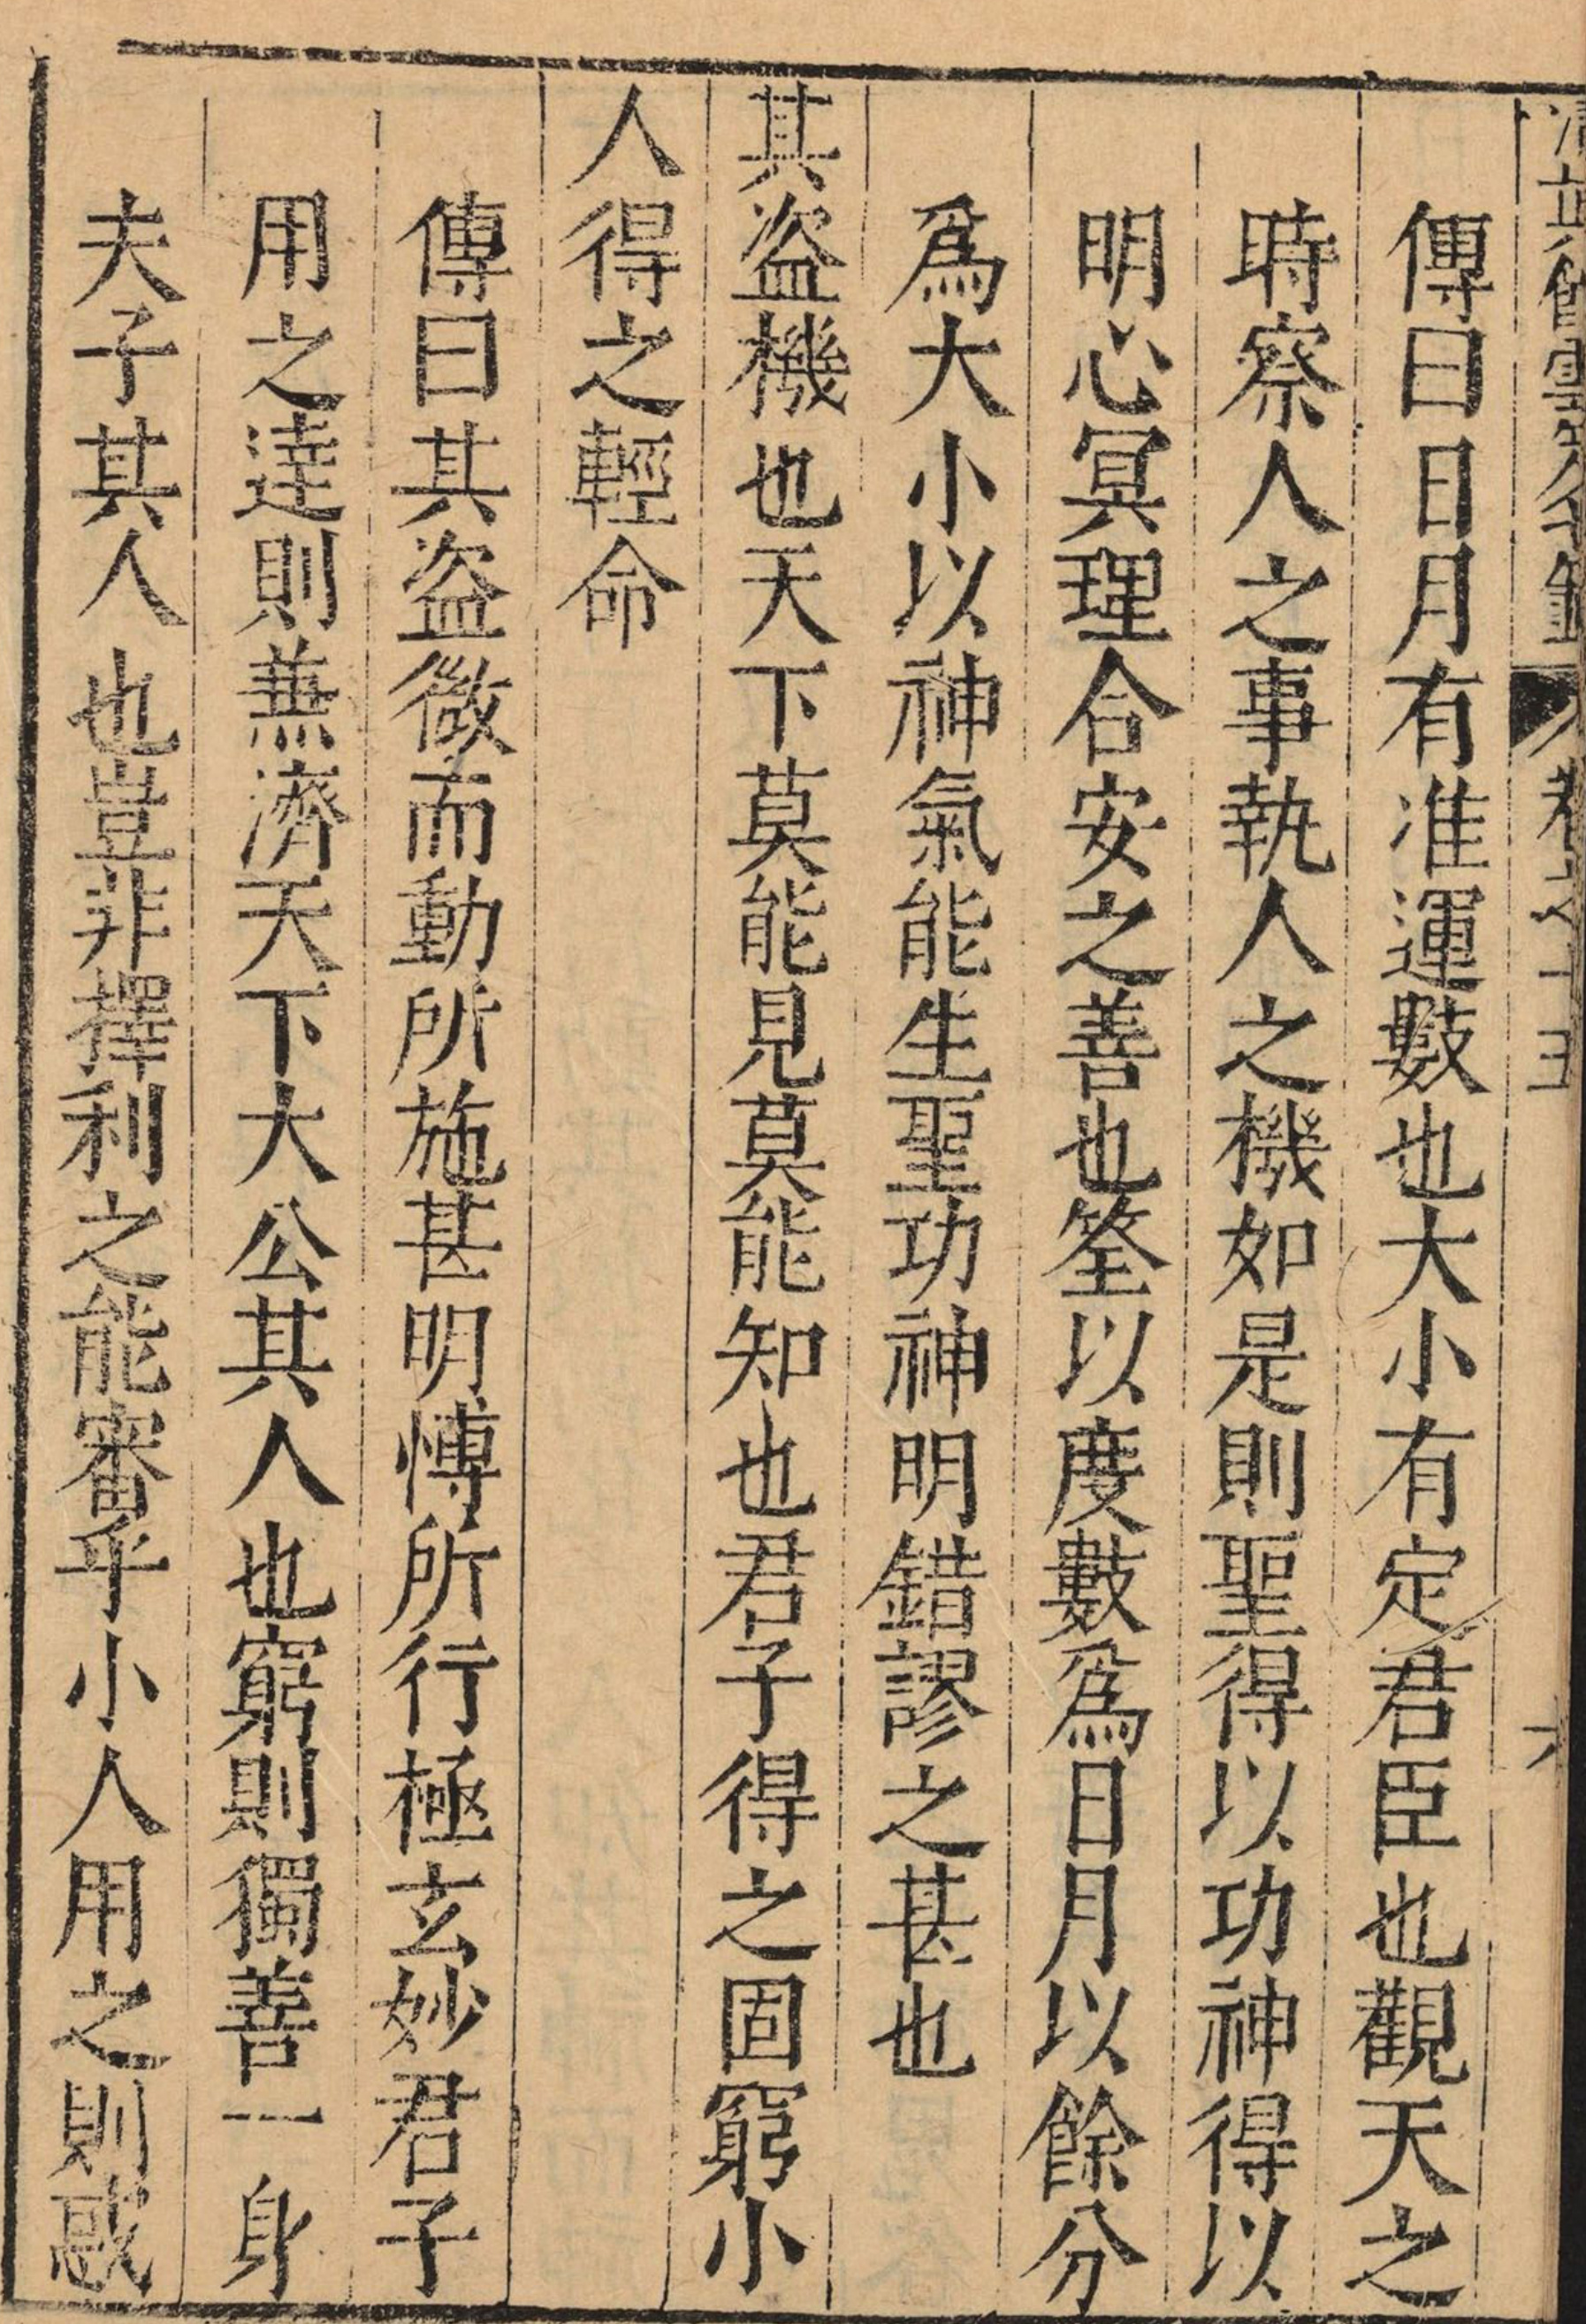 卷之十五
傳曰日月有准運數也大小有定君臣也觀天之
時察人之事執人之機如是則聖得以功神得以
明心冥理合安之善也筌以度數爲日月以餘分
爲大小以神氣能生聖功神明錯謬之甚也
其盗機也天下莫能見莫能知也君子得之固窮小
人得之輕命
傳曰其盗微而動所施甚明愽所行極玄妙君子
用之達則兼濟天下大公其人也窮則獨善一身
夫子其人也豈非擇利之能審乎小人用之則惑